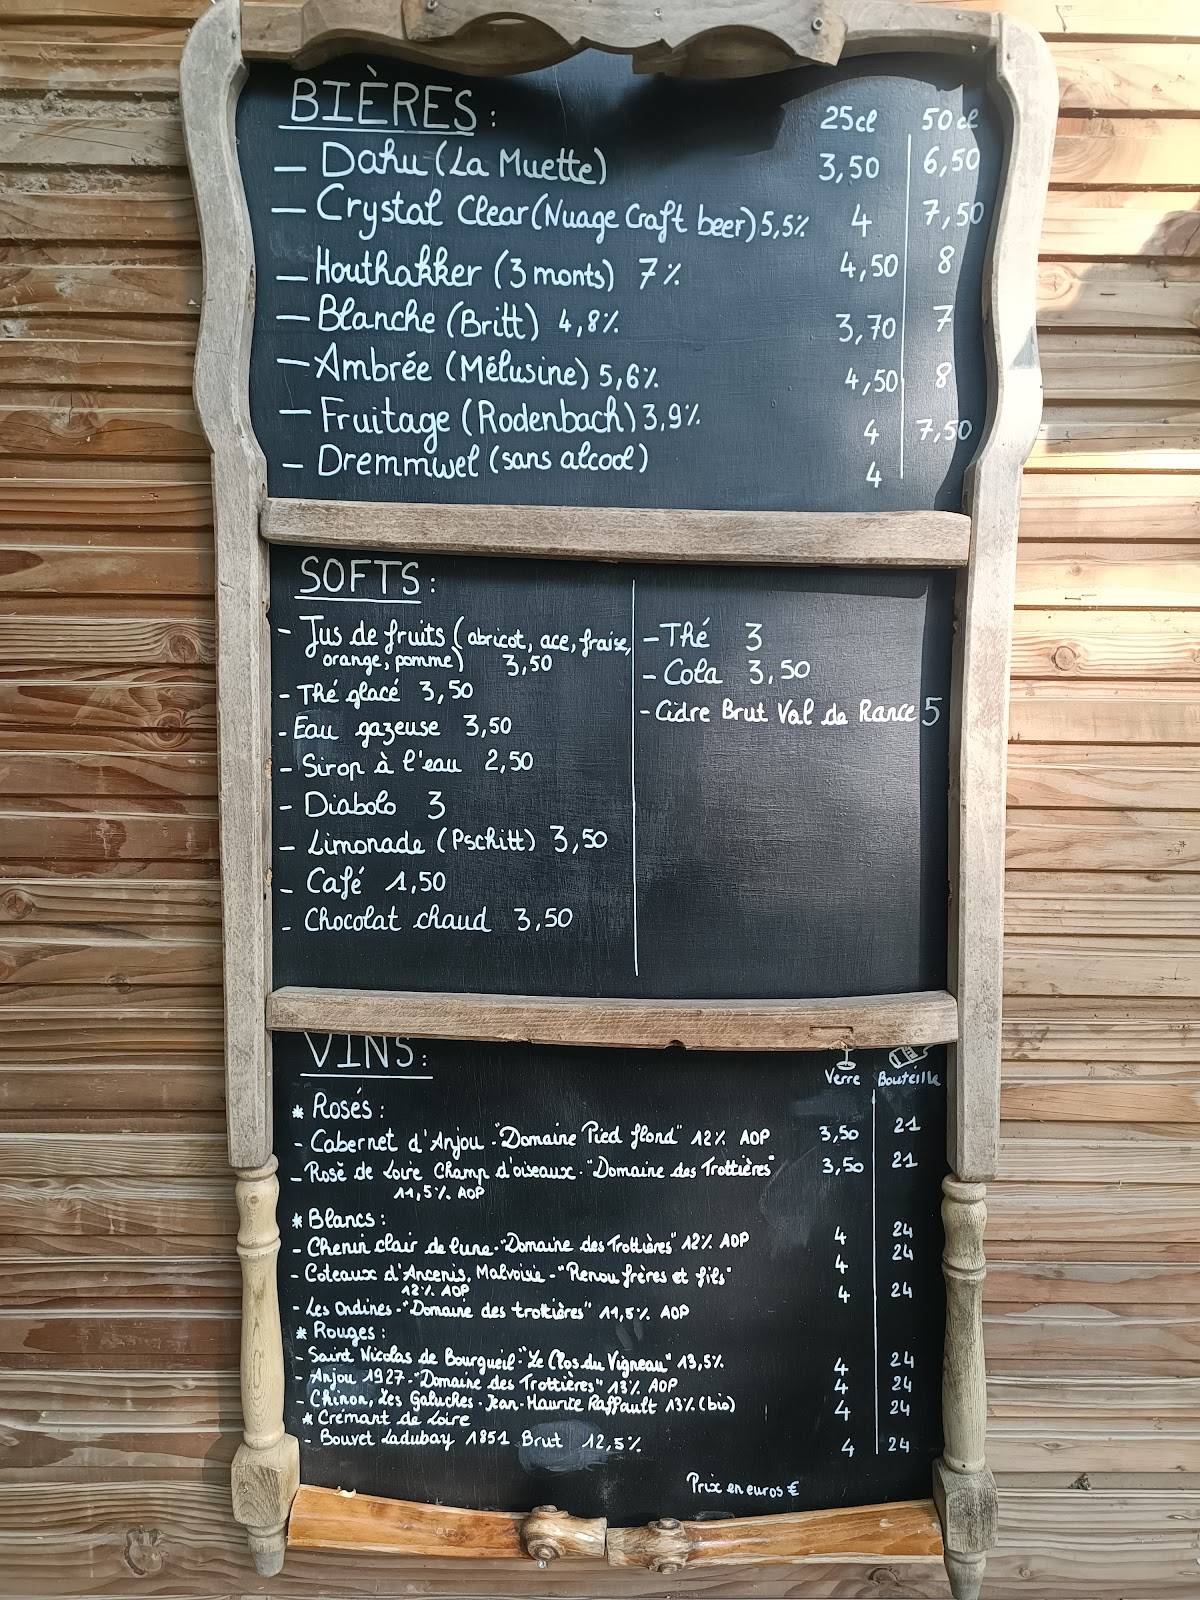 BIÈRES : 25cl 50cl
— Dahu (La Muette) 3,50 6,50
— Crystal Clear (Nuage Craft beer) 5,5% 4 7,50
— Houthakker (3 monts) 7% 4,50 8
— Blanche (Britt) 4,8% 3,70 7
— Ambrée (Mélusine) 5,6% 4,50 8
— Fruitage (Rodenbach) 3,9% 4 7,50
— Dremmwel (sans alcool) 4
SOFTS :
- Jus de fruits (abricot, ace, fraise,
orange, pomme) 3,50
- Thé glacé 3,50
- Eau gazeuse 3,50
- Sirop à l'eau 2,50
- Diabolo 3
- Limonade (Pschitt) 3,50
- Café 1,50
- Chocolat chaud 3,50
- Thé 3
- Cola 3,50
- Cidre Brut Val de Rance 5
VINS : Verre Bouteille
* Rosés :
- Cabernet d'Anjou - "Domaine Pied flond" 12% AOP 3,50 21
- Rosé de Loire Champ d'oiseaux - "Domaine des Trottières" 3,50 21
11,5% AOP
* Blancs :
- Chenin clair de lune - "Domaine des Trottières" 12% AOP 4 24
- Coteaux d'Ancenis, Malvoisie - "Renou frères et fils" 4 24
12% AOP
- Les Ondines - "Domaine des trottières" 11,5% AOP 4 24
* Rouges :
- Saint Nicolas de Bourgueil - "Le Clos du Vigneau" 13,5% 4 24
- Anjou 1927 - "Domaine des Trottières" 13% AOP 4 24
- Chinon, Les Galuches - Jean-Maurice Raffault 13% (bio) 4 24
* Crémant de Loire
- Bouvet Ladubay 1851 Brut 12,5% 4 24
Prix en euros €